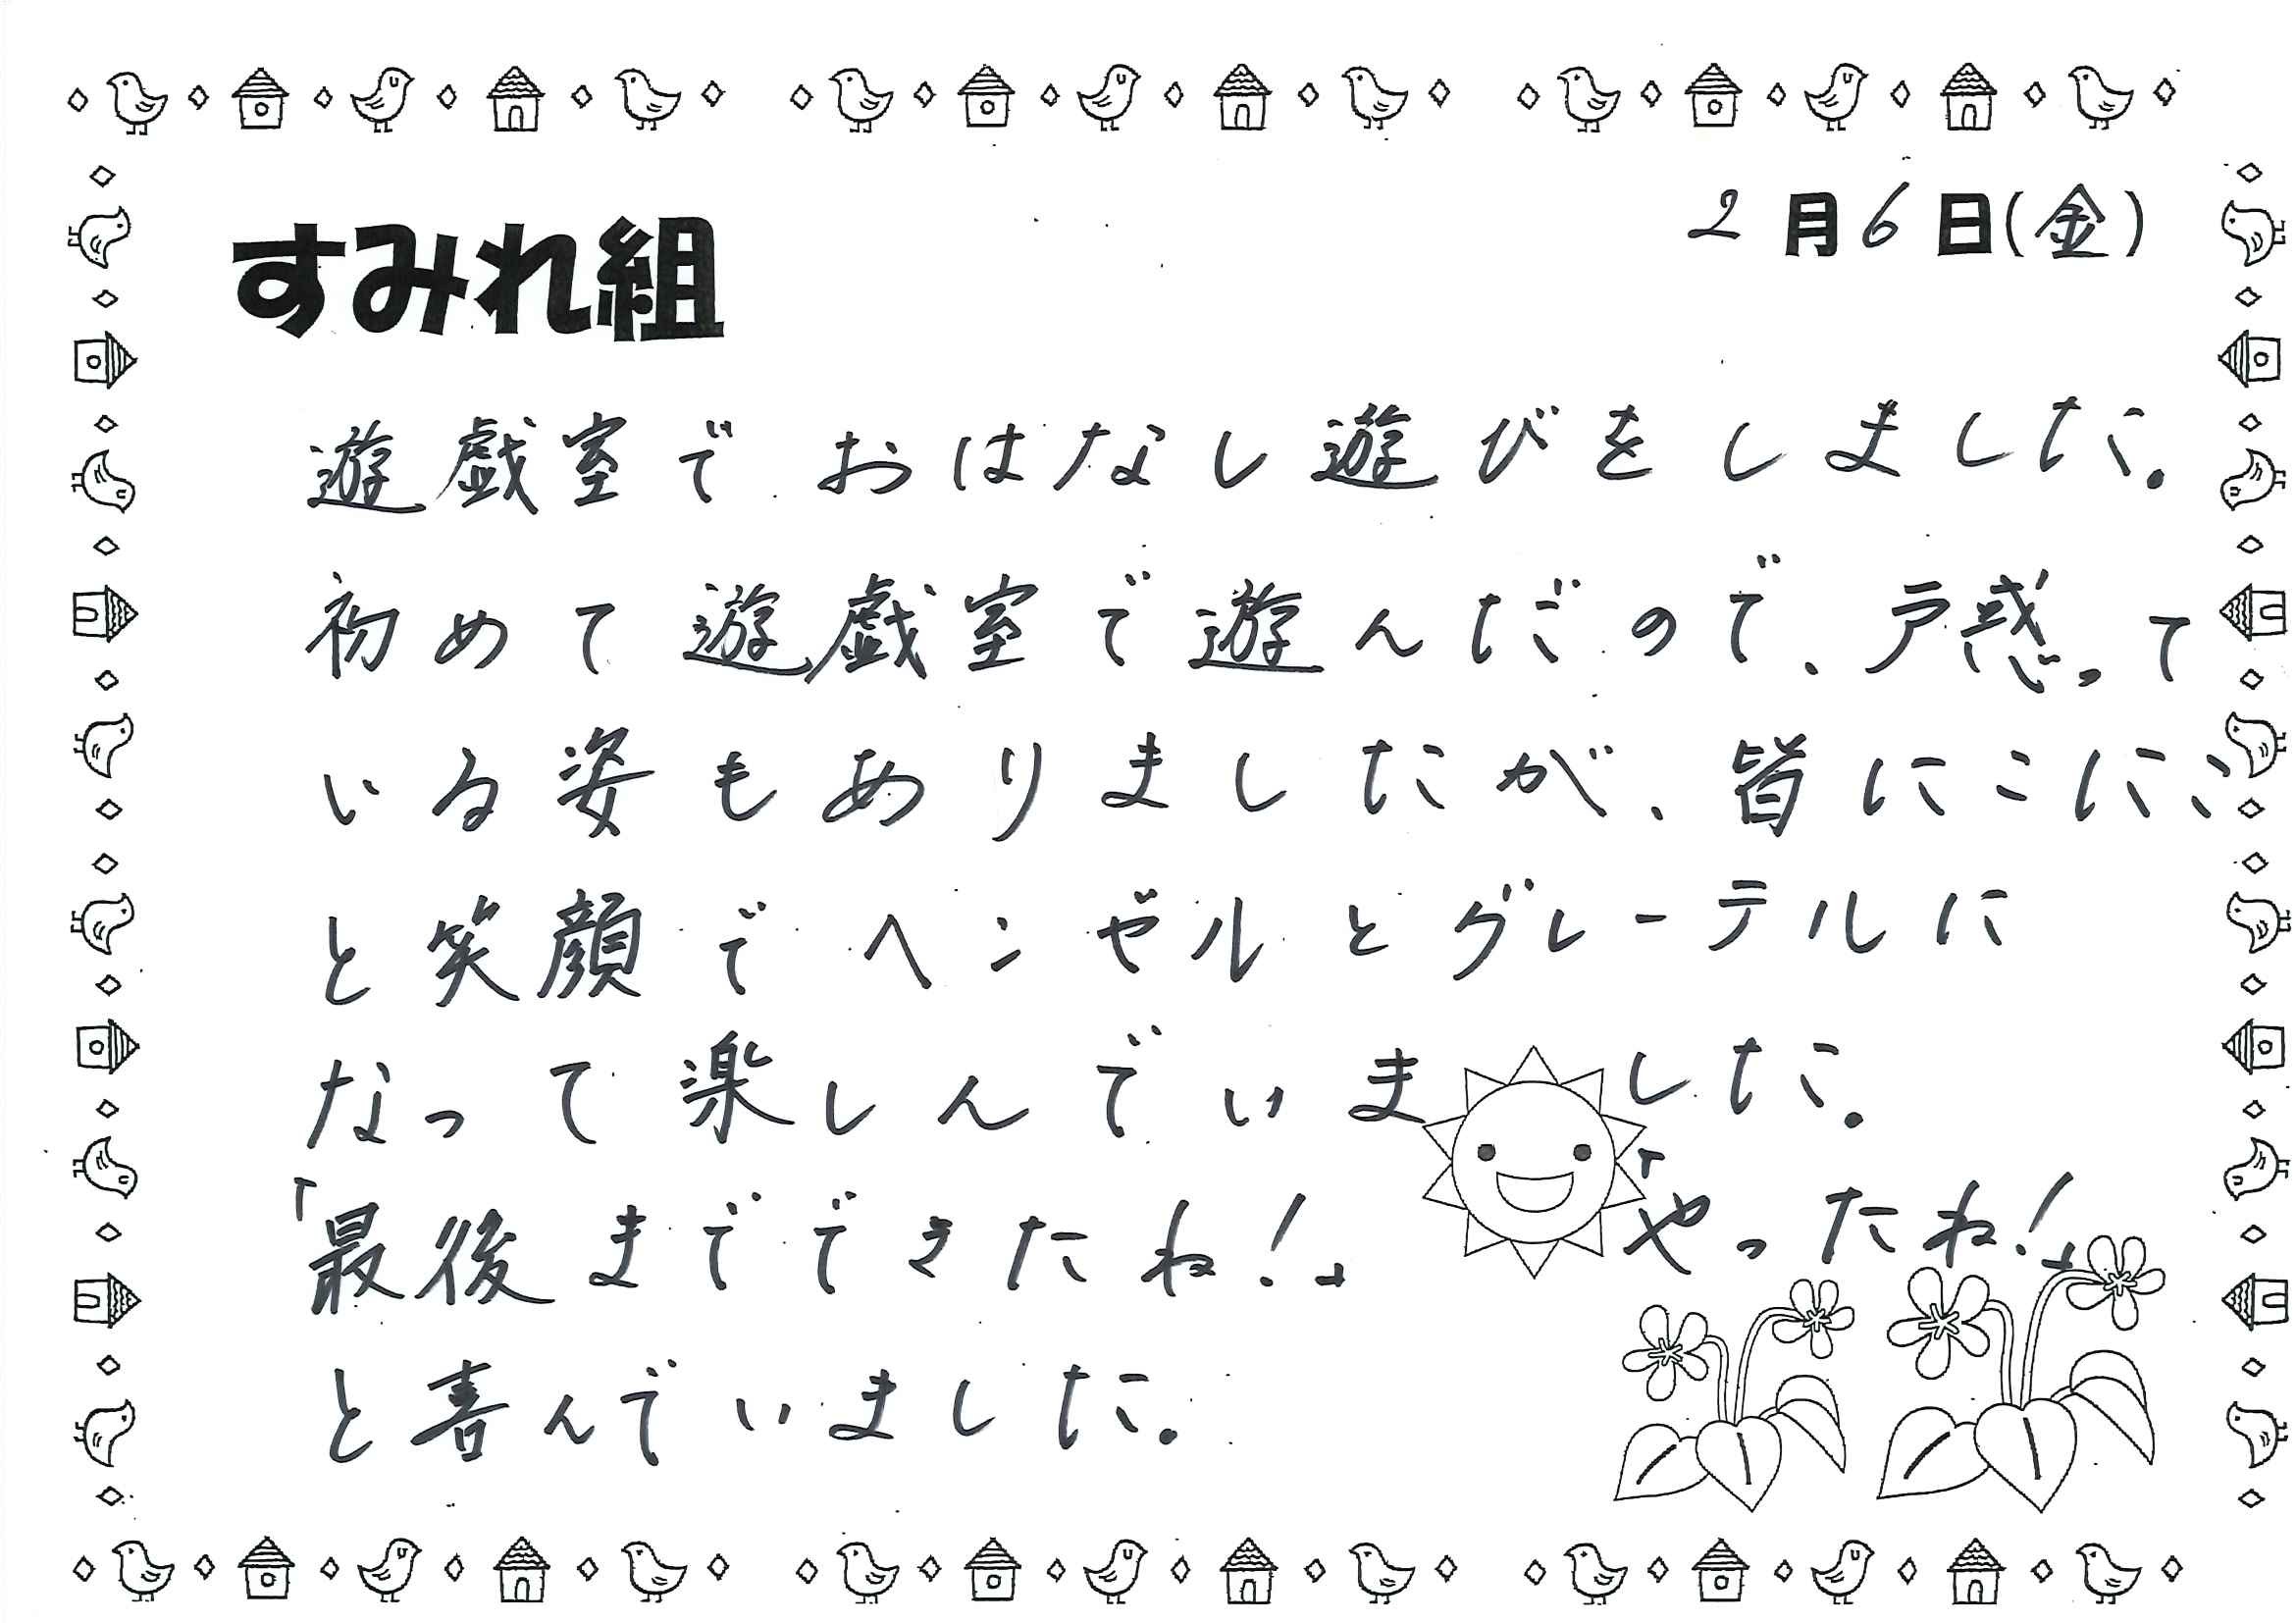 2月6日(金)
すみれ組
遊戯室でおはなし遊びをしました。
初めて遊戯室で遊んだので、戸惑って
いる姿もありましたが、皆にこにこ
と笑顔でヘンゼルとグレーテルに
なって楽しんでいました。
「最後までできたね!」「やったね!」
と喜んでいました。